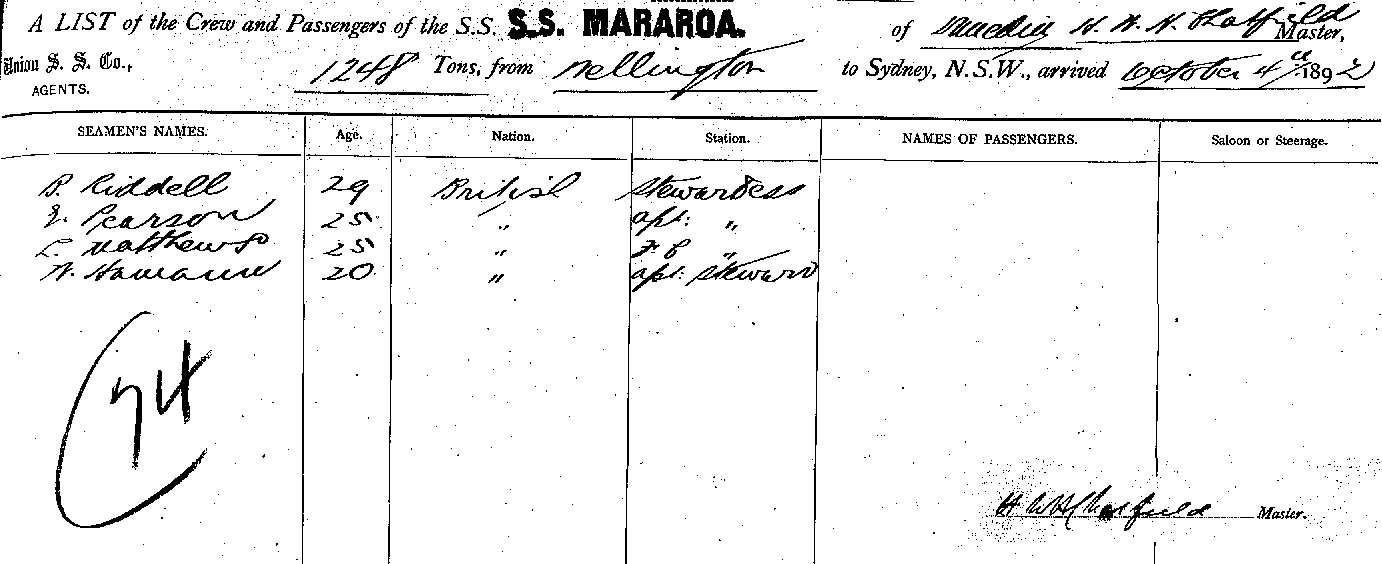 A LIST of the Crew and Passengers of the S.S. S.S. MARAROA. of Dunedin H. W. H. Chatfield Master,
Union S. S. Co., 1248 Tons, from Wellington to Sydney, N.S.W., arrived October 4th 1892
AGENTS.
SEAMEN'S NAMES. Age. Nation. Station. NAMES OF PASSENGERS. Saloon or Steerage.
B. Riddell 29 British Stewardess
Pearson 25 " asst: "
Matthews 25 " F C "
20 " asst: Steward
74
H W H Chatfield Master.